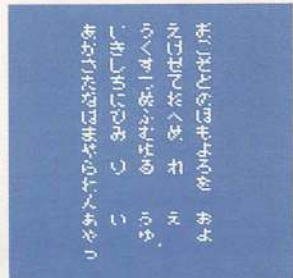 おこそとのほもよろを ぉょ
えけせてねへめ れ ぇ
うくすつぬふむゆる ぅゅ
いきしちにひみ り ぃ
あかさたなはまやらわんぁゃっ